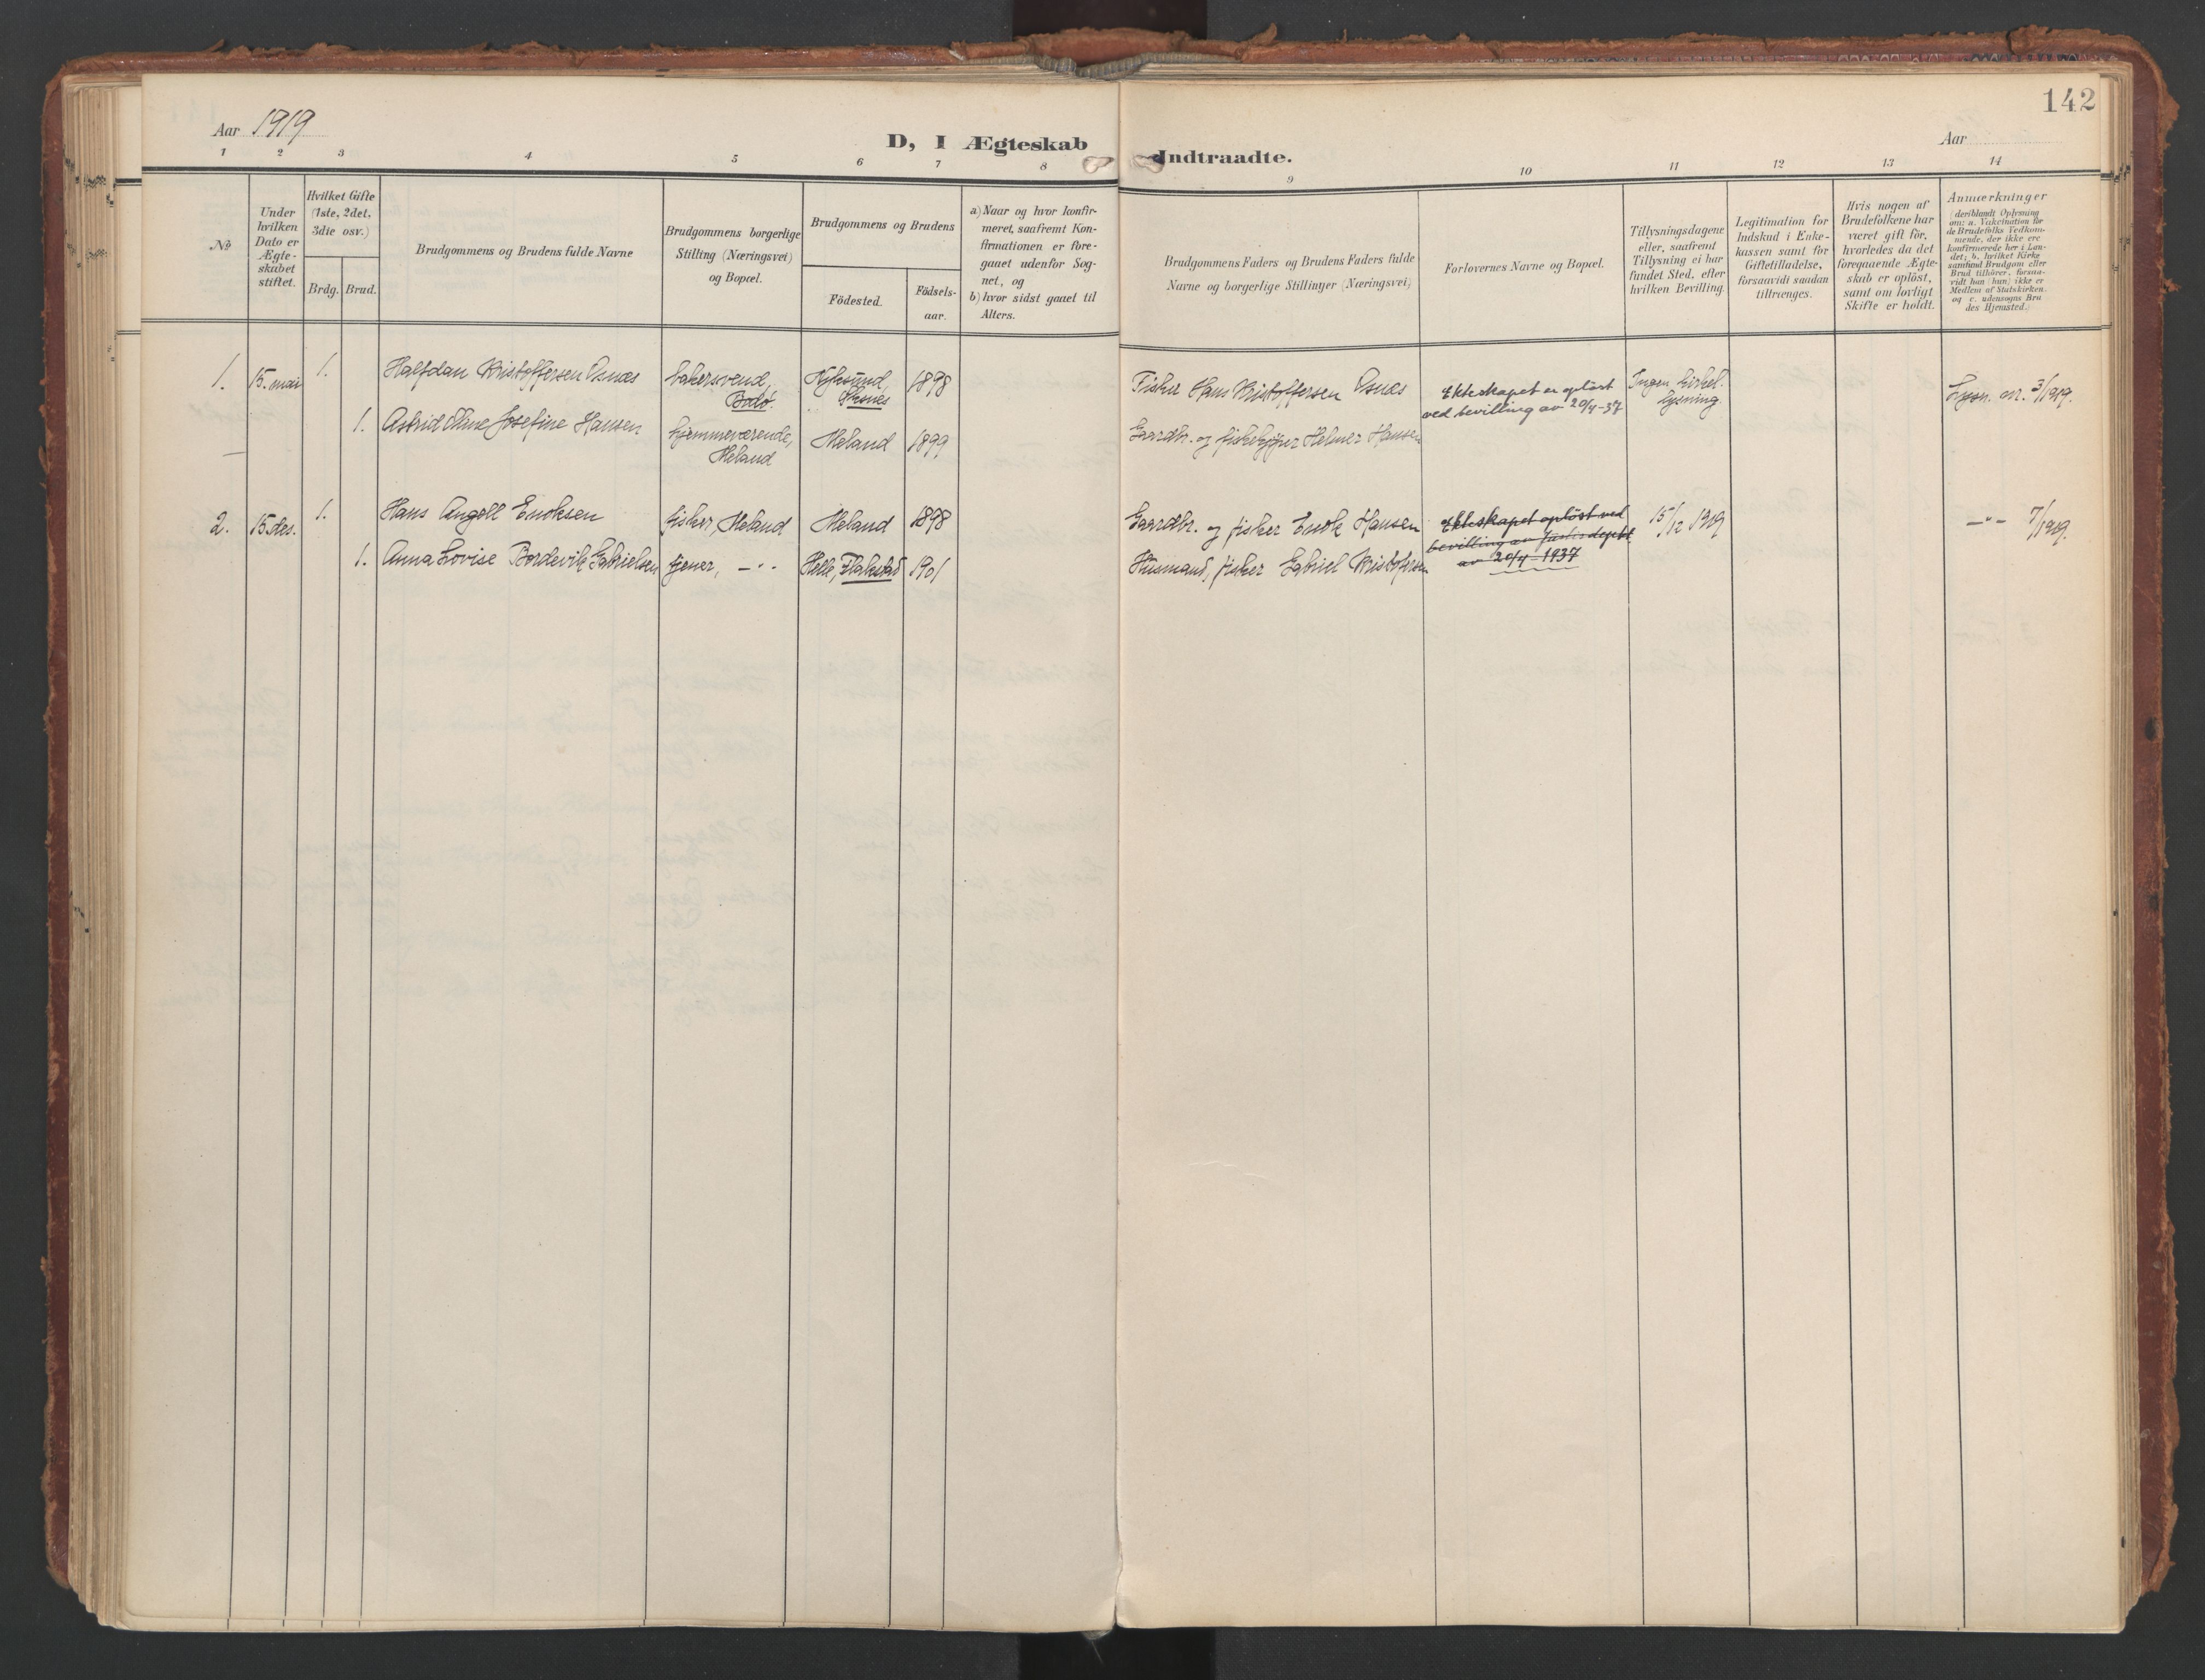 142
Aar 1919
Aar
D, I Ægteskab Indtraadte.
1 2 3 4 5 6 7 8 9 10 11 12 13 14
No
Under hvilken Dato er Ægte-skabet stiftet.
Hvilket Gifte (1ste, 2det, 3die osv.)
Brdg. Brud.
Brudgommens og Brudens fulde Navne
Brudgommens borgerlige
Stilling (Næringsvei)
og Bopæl.
Brudgommens og Brudens
Födested.
Födsels-
aar.
a) Naar og hvor konfir-
meret, saafremt Kon-
firmationen er fore-
gaaet udenfor Sog-
net, og
b) hvor sidst gaaet til
Alters.
Brudgommens Faders og Brudens Faders fulde
Navne og borgerlige Stillinger (Næringsvei)
Forlovernes Navne og Bopæl.
Tillysningsdagene
eller, saafremt
Tillysning ei har
fundet Sted, efter
hvilken Bevilling.
Legitimation for
Indskud i Enke-
kassen samt for
Giftetilladelse,
forsaavidt saadan
tiltrænges.
Hvis nogen af
Brudefolkene har
været gift för,
hvorledes da det
foregaaende Ægte-
skab er oplöst,
samt om lovligt
Skifte er holdt.
Anmærkninger
(deriblandt Oplysning
om: a. Vakcination för
de Brudefolks Vedkom-
mende, der ikke ere
konfirmerede her i Lan-
det; b. hvilket Kirke
samfund Brudgom eller
Brud tilhörer, forsaa-
vidt han (hun) ikke er
Medlem af Statskirken.
og c. udensogns Bru
des Hjemsted.)
1. 15. mai 1. Halfdan Kristoffersen Osnæs bakersvend, Bodö. Nyksund, Öksnes 1898 Fisker Hans Kristoffersen Osnæs Ekteskapet er oplöst
ved bevilling av 20/4-37 Ingen kirkel.
lysning. Lysn. nr. 3/1919.
1. Astrid Oline Josefine Hansen hjemmeværende,
Meland Meland 1899 Gaardbr. og fiskekjöper Helmer Hansen
2. 15. des. 1. Hans Angell Enoksen fisker, Meland Meland 1898 Gaardbr. og fisker Enok Hansen Ekteskapet oplöst ved
bevilling av justisdepts
av 20/4 1937 15/12 1919 -"- 7/1919.
1. Anna Lovise Bordevik Gabrielsen tjener, -"- Helle, Flakstad 1901 Husmand, fisker Gabriel Kristofersen